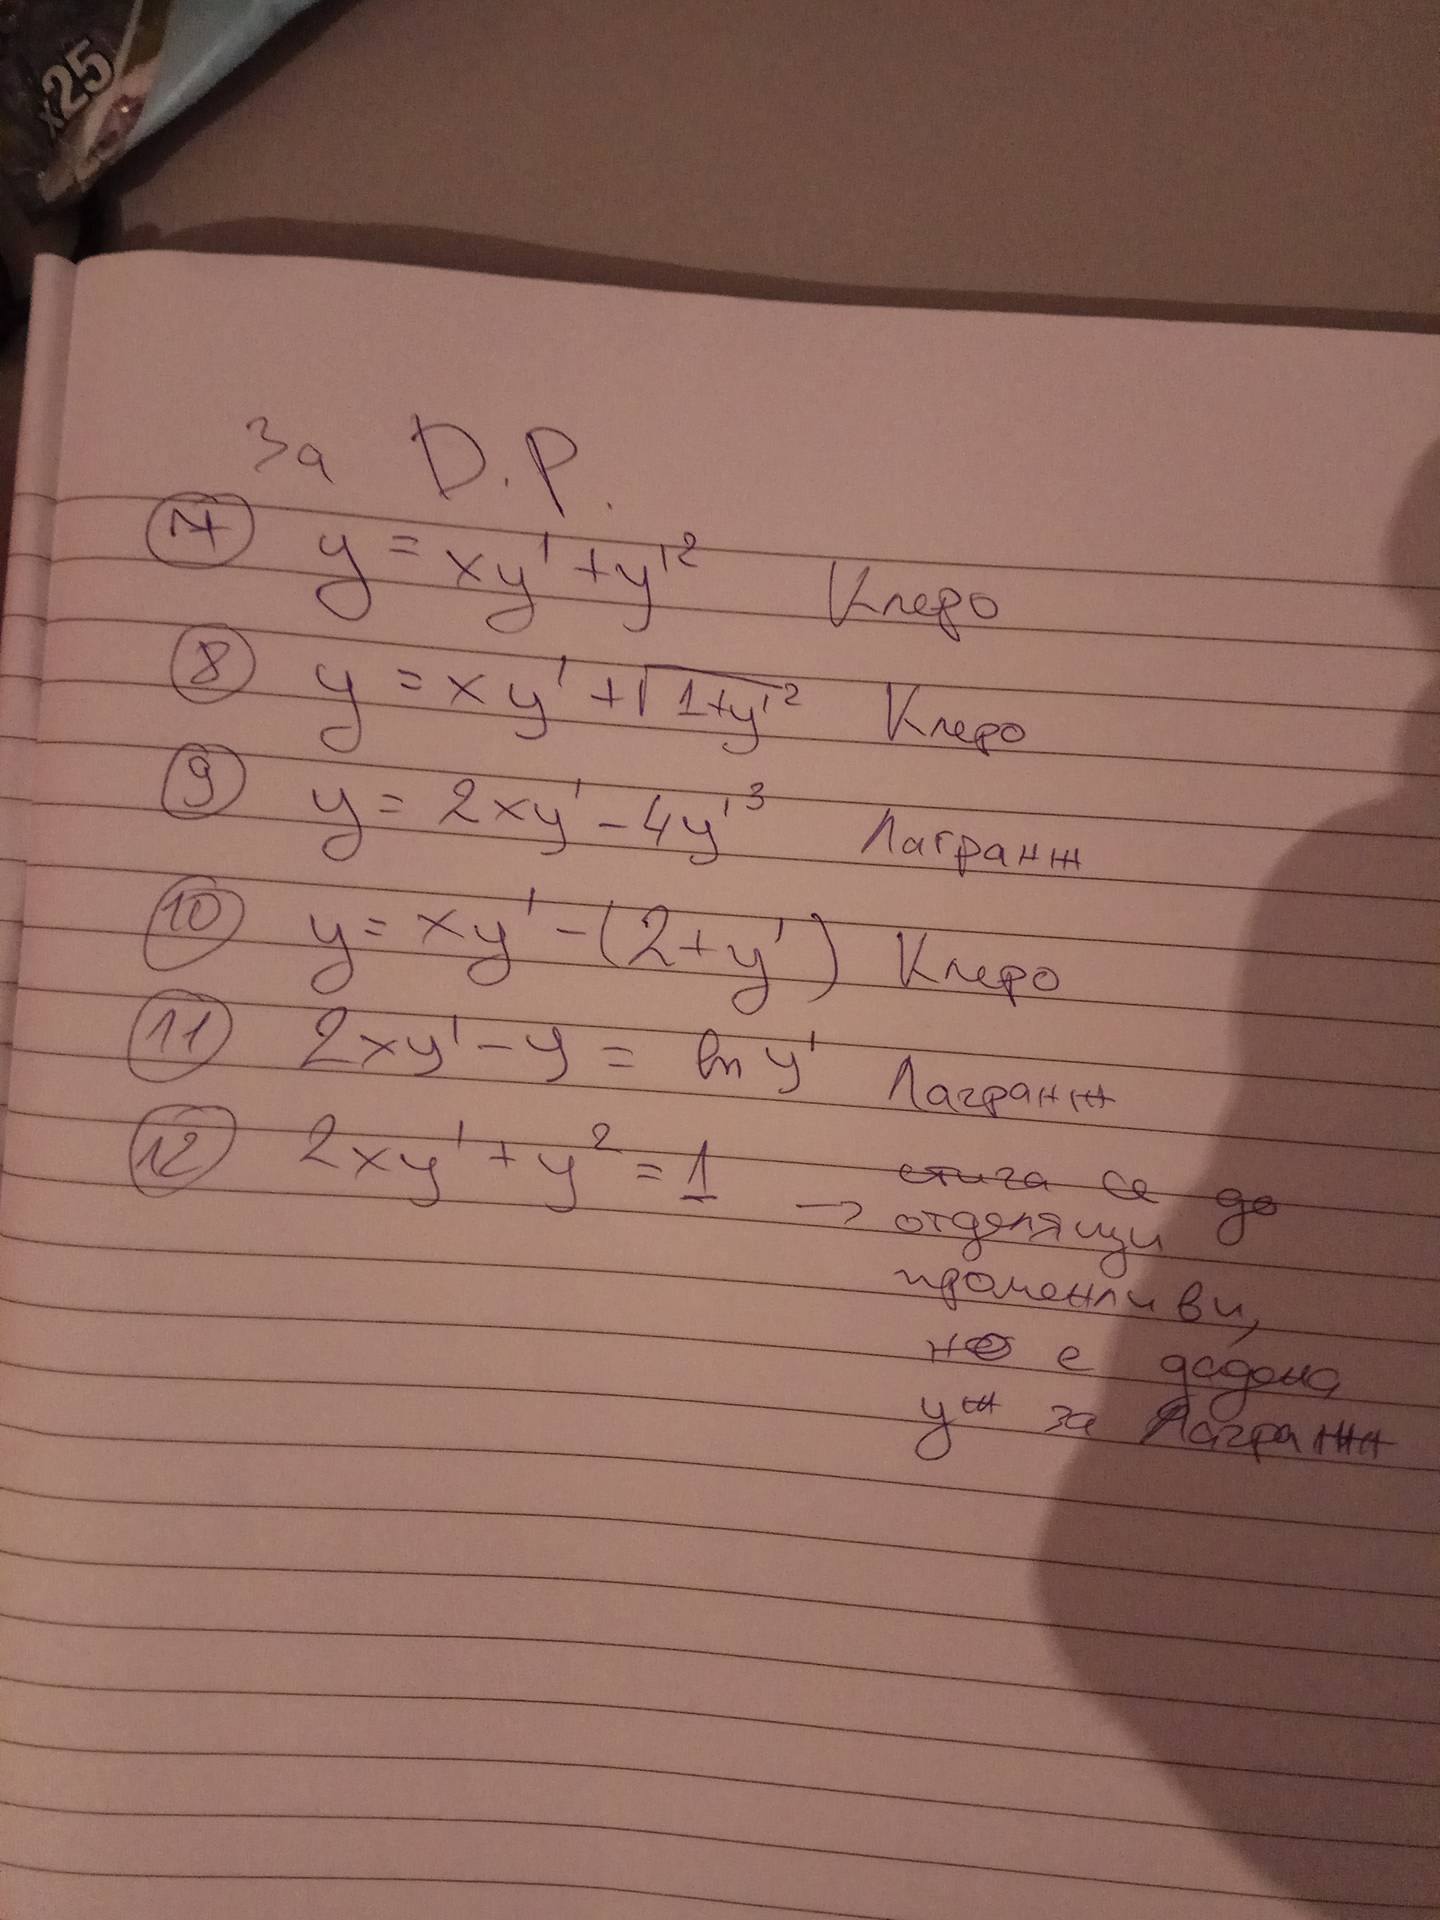 x25
За D.P.
7 y = xy' + y'² Клеро
8 y = xy' + √1+y'² Клеро
9 y = 2xy' - 4y'³ Лагранж
10 y = xy' - (2+y') Клеро
11 2xy' - y = ln y' Лагранж
12 2xy' + y² = 1 → стига се до
отделящи
променливи,
но е дадена
уж за Лагранж